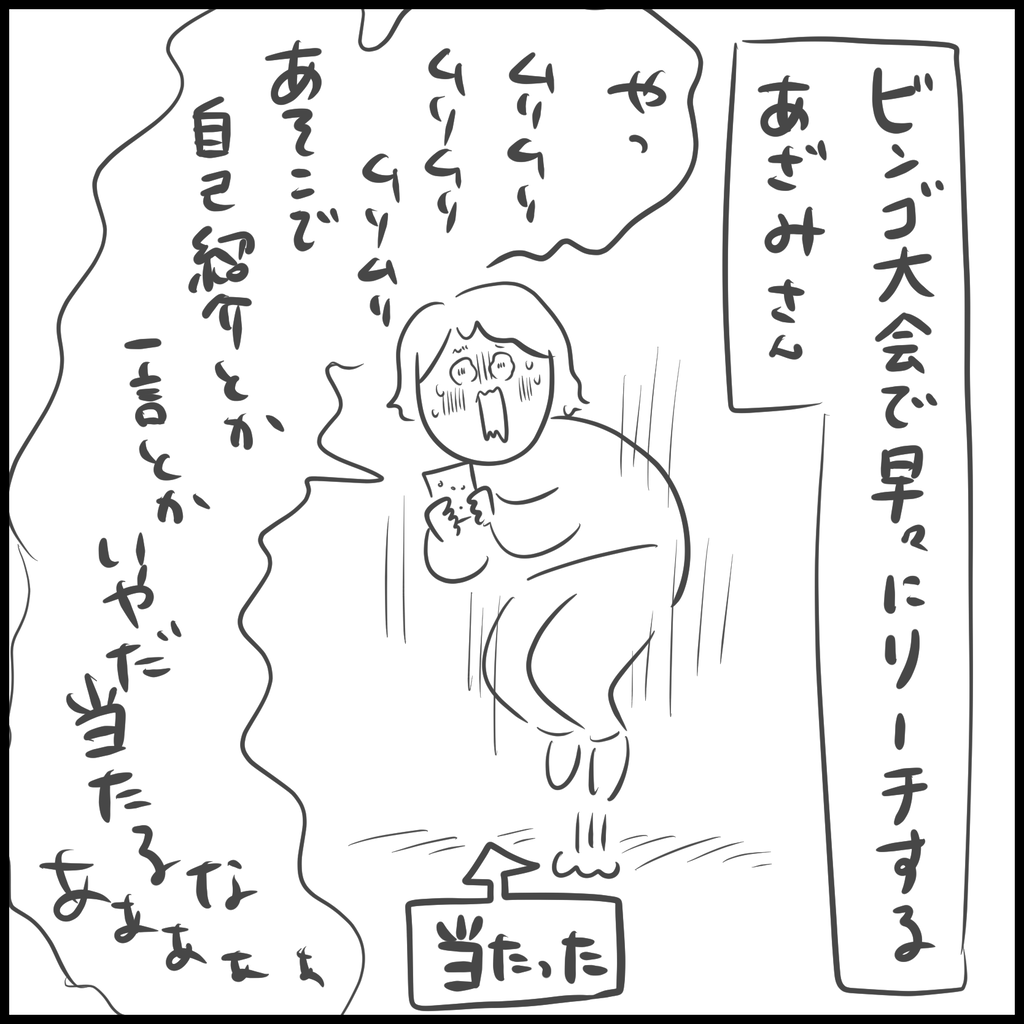 ビンゴ大会で早々にリーチする
あざみさん
やっ
ムリムリ
ムリームリ
ムリムリ
あそこで
自己紹介とか
一言とか
いやだ
当たるな
あぁぁぁぁ
当たった